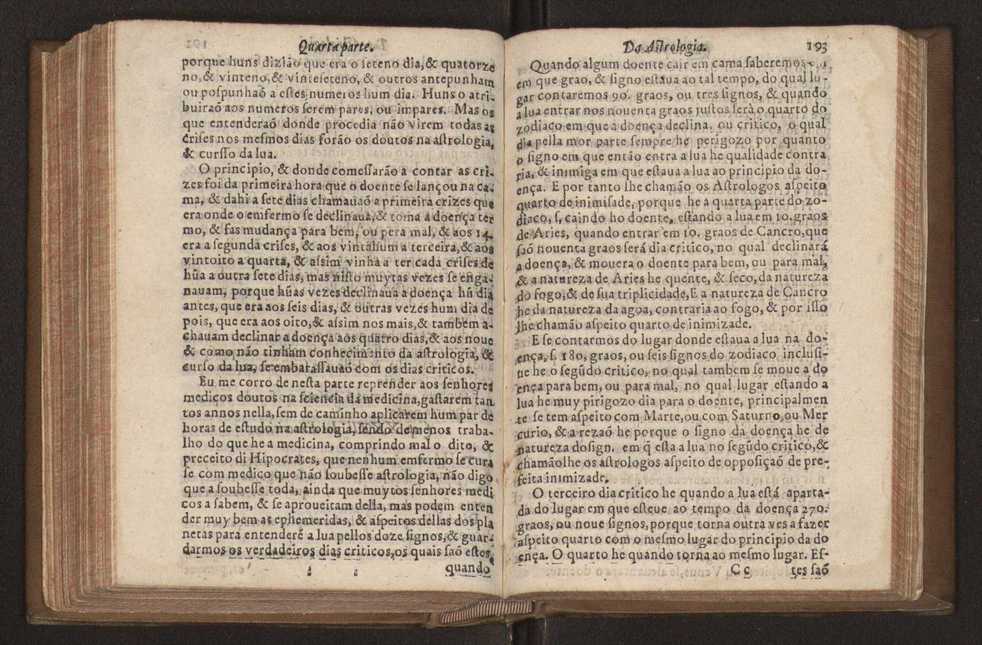 Quarta parte.
porque huns dizião que era o seteno dia,& quatorze
no,& vinteno,& vinteseteno, & outros antepunham
ou pospunhaõ a estes numeros hum dia. Huns o atri-
buiraõ aos numeros serem pares, ou impares. Mas os
que entenderaõ donde procedia não virem todas as
crises nos mesmos dias forão os doutos na astrologia,
& cursso da lua.
O principio, & donde comessarão a contar as cri-
zes foi da primeira hora que o doente se lançou na ca-
ma, & dahi a sete dias chamauaõ a primeira crizes que
era onde o emfermo se declinaua,& toma a doença ter
mo, & fas mudança para bem, ou pera mal, & aos 14.
era a segunda crises, & aos vintahum a terceira,& aos
vintoito a quarta, & assim vinha a ter cada crises de
hũa a outra sete dias, mas nisto muytas vezes se enga-
nauam, porque hũas vezes declinaua a doença hũ dia
antes, que era aos seis dias, & outras vezes hum dia de
pois, que era aos oito,& assim nos mais,& também a-
chauam declinar a doença aos quatro dias,& aos noue
& como não tinham conhecimento da astrologia, &
curso da lua, se embarassauaõ com os dias criticos.
Eu me corro de nesta parte reprender aos senhores
medicos doutos na sciencia da medicina,gastarem tan
tos annos nella,sem de caminho aplicarem hum par de
horas de estudo na astrologia, sendo de menos traba-
lho do que he a medicina, comprindo mal o dito, &
preceito di Hipocrates, que nenhum emfermo se cura
se com medico que não soubesse astrologia, não digo
que a soubesse toda, ainda que muytos senhores medi
cos a sabem, & se aproueitam della, mas podem enten
der muy bem as ephemeridas, & aspeitos dellas dos pla
netas para entenderẽ a lua pellos doze signos,& guar-
darmos os verdadeiros dias criticos,os quais saõ estes,
quando
Da Astrologia. 193
Quando algum doente cair em cama saberemos
em que grao, & signo estaua ao tal tempo, do qual lu-
gar contaremos 90. graos, ou tres signos, & quando
a lua entrar nos nouenta graos justos serà o quarto do
zodiaco em que a doença declina, ou critico, o qual
dia pella mor parte sempre he perigozo por quanto
o signo em que então entra a lua he qualidade contra
ria, & inimiga em que estaua a lua ao principio da do-
ença. E por tanto lhe chamão os Astrologos aspeito
quarto de inimisade, porque he a quarta parte do zo-
diaco, s, caindo ho doente, estando a lua em 10. graos
de Aries, quando entrar em 10. graos de Cancro, que
saõ nouenta graos será dia critico, no qual declinará
a doença, & mouera o doente para bem, ou para mal,
& a natureza de Aries he quente, & seco, da natureza
do fogo,& de sua triplicidade, E a natureza de Cancro
he da natureza da agoa, contraria ao fogo, & por isso
lhe chamão aspeito quarto de inimizade.
E se contarmos do lugar donde estaua a lua na do-
ença, s. 180. graos, ou seis signos do zodiaco inclusi-
ue he o segũdo critico, no qual tambem se moue a do
ença para bem, ou para mal, no qual lugar estando a
lua he muy pirigozo dia para o doente, principalmen
te se tem aspeito com Marte, ou com Saturno, ou Mer
curio, & a rezaõ he porque o signo da doença he de
natureza dosign. em q̃ esta a lua no segũdo critico,&
chamãolhe os astrologos aspeito de opposiçaõ de pre-
feita inimizade.
O terceiro dia critico he quando a lua está aparta-
da do lugar em que esteue ao tempo da doença 270.
graos, ou noue signos, porque torna outra ves a fazer
aspeito quarto com o mesmo lugar do principio da do
ença. O quarto he quando torna ao mesmo lugar. Es-
Cc tes saõ